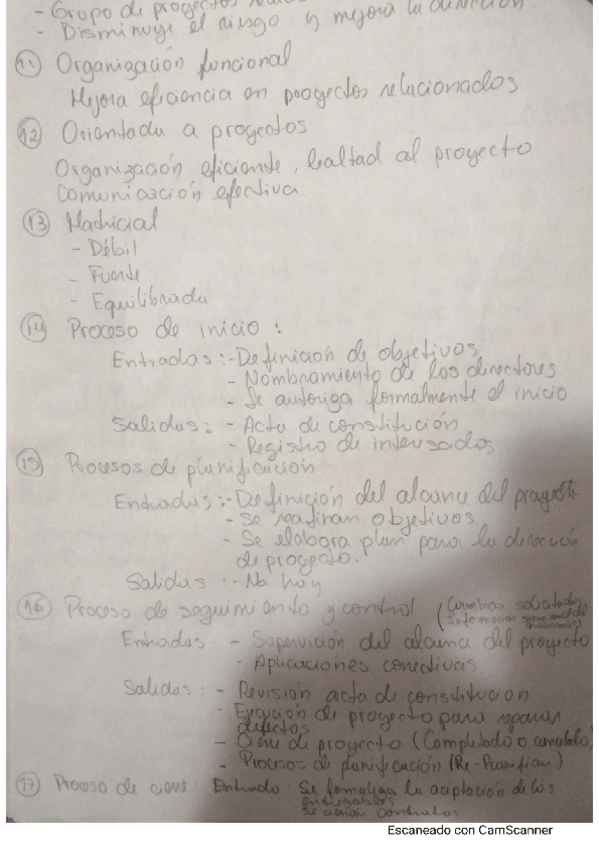 - Grupo de proyectos
- Disminuye el riesgo y mejora la dirección
11 Organización funcional
Mejora eficiencia en proyectos relacionados
12 Orientada a proyectos
Organización eficiente, lealtad al proyecto
Comunicación efectiva
13 Matricial
- Débil
- Fuerte
- Equilibrada
14 Proceso de inicio :
Entradas : - Definición de objetivos
- Nombramiento de los directores
- Se autoriza formalmente el inicio
Salidas : - Acta de constitución
- Registro de interesados
15 Procesos de planificación
Entradas : - Definición del alcance del proyecto
- Se reafirman objetivos
- Se elabora plan para la dirección
de proyecto.
Salidas : - No hay
16 Proceso de seguimiento y control (Cambios solicitados
Información
Entradas - Supervición del alcance del proyecto
- Aplicaciones correctivas
Salidas : - Revisión acta de constitución
- Ejecución de proyecto para reparar
defectos
- Cierre de proyecto (Completado o cancelado)
- Procesos de planificación (Re-Planifican)
17 Proceso de cierre : Entrada : Se formaliza la aceptación de los
entregables
Se cierran contratos
Escaneado con CamScanner